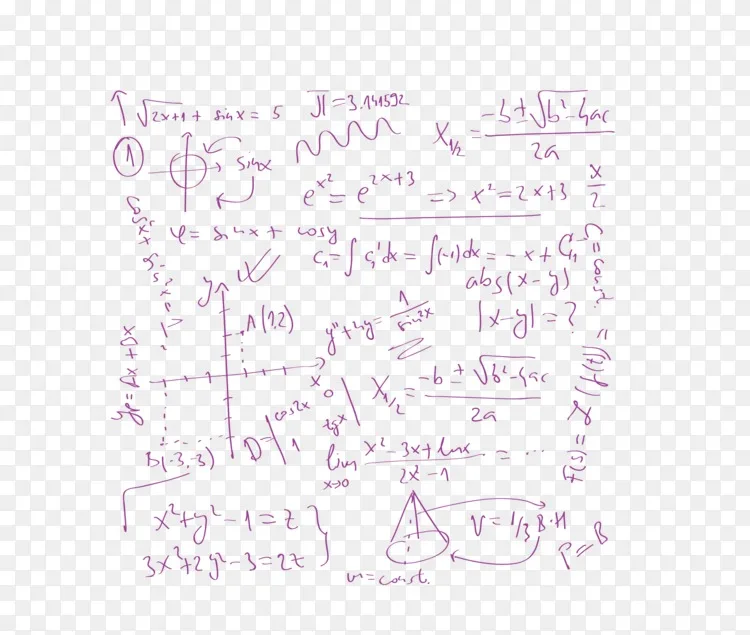 √2x+1 + sinx = 5
π = 3.141592
x1/2 = -b ± √b²-4ac / 2a
1
sinx
e^x² = e^2x+3 => x² = 2x+3
x/2
φ = sinx + cosy
C₁ = ∫ C₁'dx = ∫(-1)dx = -x + C₁
abs(x-y)
y
A(1,2)
y"+4y = 1/sin2x
|x-y| = ?
x
x1/2 = -b ± √b²-4ac / 2a
D = | cos2x 0
1 tgx |
B(-3,-3)
lim x→0 x²-3x+lnx / 2x²-1 = ...
x²+y²-1=z
3x³+2y²-3=2z
V = 1/3 B·H
P=B
m=const.